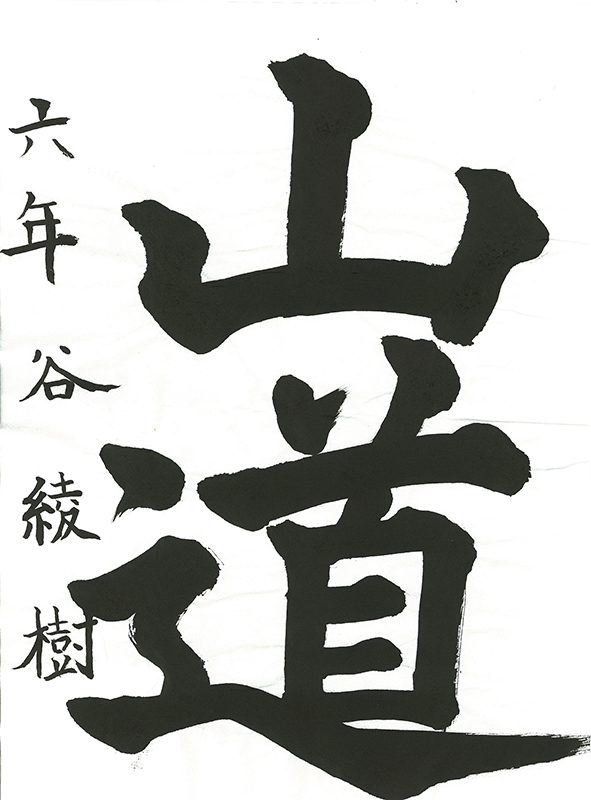 山道
六年 谷 綾樹